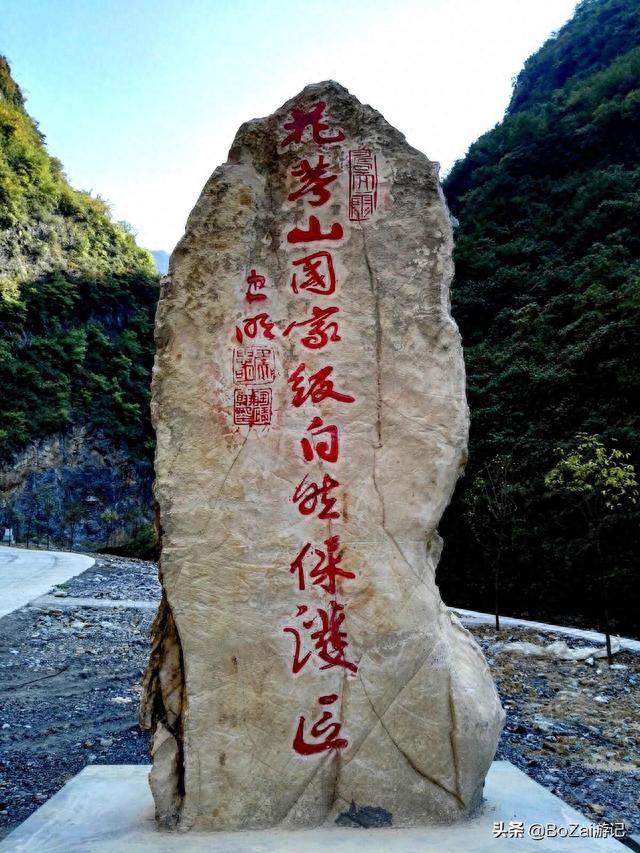 花萼山国家级自然保護区
头条 @BoZai游记